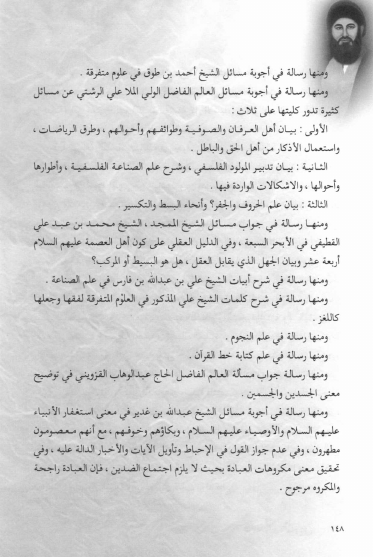 ومنها رسالة في أجوبة مسائل الشيخ أحمد بن طوق في علوم متفرقة .
ومنها رسالة في أجوبة مسائل العالم الفاضل الولي الملا علي الرشتي عن مسائل
كثيرة تدور كليتها على ثلاث :
الأولى : بيـان أهل العـرفـان والصوفيـة وطوائفـهم وأحوالـهم ، وطرق الرياضـات ،
واستعمال الأذكار من أهل الحق والباطل .
الثـانيـة : بيـان تدبيـر المولود الفلسفـي ، وشرح علم الصناعـة الفلسفـيـة ، وأطوارها
وأحوالها ، والاشكالات الواردة فيها .
الثالثة : بيان علم الحروف والجفر؟ وأنحاء البسط والتكسير .
ومنهـا رسـالـة في جـواب مسـائل الشيخ الممجـد ، الشيخ محـمـد بن عبـد علي
القطيفي في الأبحر السبعة ، وفي الدليل العقلي على كون أهل العصمة عليهم السلام
أربعة عشر وبيان الجهل الذي يقابل العقل ، هل هو البسيط أو المركب؟
ومنها رسالة في شرح أبيات الشيخ علي بن عبدالله بن فارس في علم الصناعة .
ومنها رسالة في شرح كلمات الشيخ علي المذكور في العلوم المتفرقة لفقها وجعلها
كاللغز .
ومنها رسالة في علم النجوم .
ومنها رسالة في علم كتابة خط القرآن .
ومنها رسالـة جواب مسألة العالم الفاضل الحاج عبدالوهاب القزويني في توضيح
معنى الجسدين والجسمين .
ومنها رسالة في أجوبة مسائل الشيخ عبدالله بن غدير في معنى استغفار الأنبيـاء
عليـهم السـلام والأوصيـاء عليـهم السـلام ، وبكاؤهم وخوفـهم ، مع أنهم مـعصـومـون
مطهرون ، وفي عدم جواز القول في الإحباط وتأويل الآيات والأخبار الدالة عليه ، وفي
تحقيق معنى مكروهات العبادة بحيث لا يلزم اجتماع الضدين ، فإن العبادة راجحـة
والمكروه مرجوح .
١٤٨